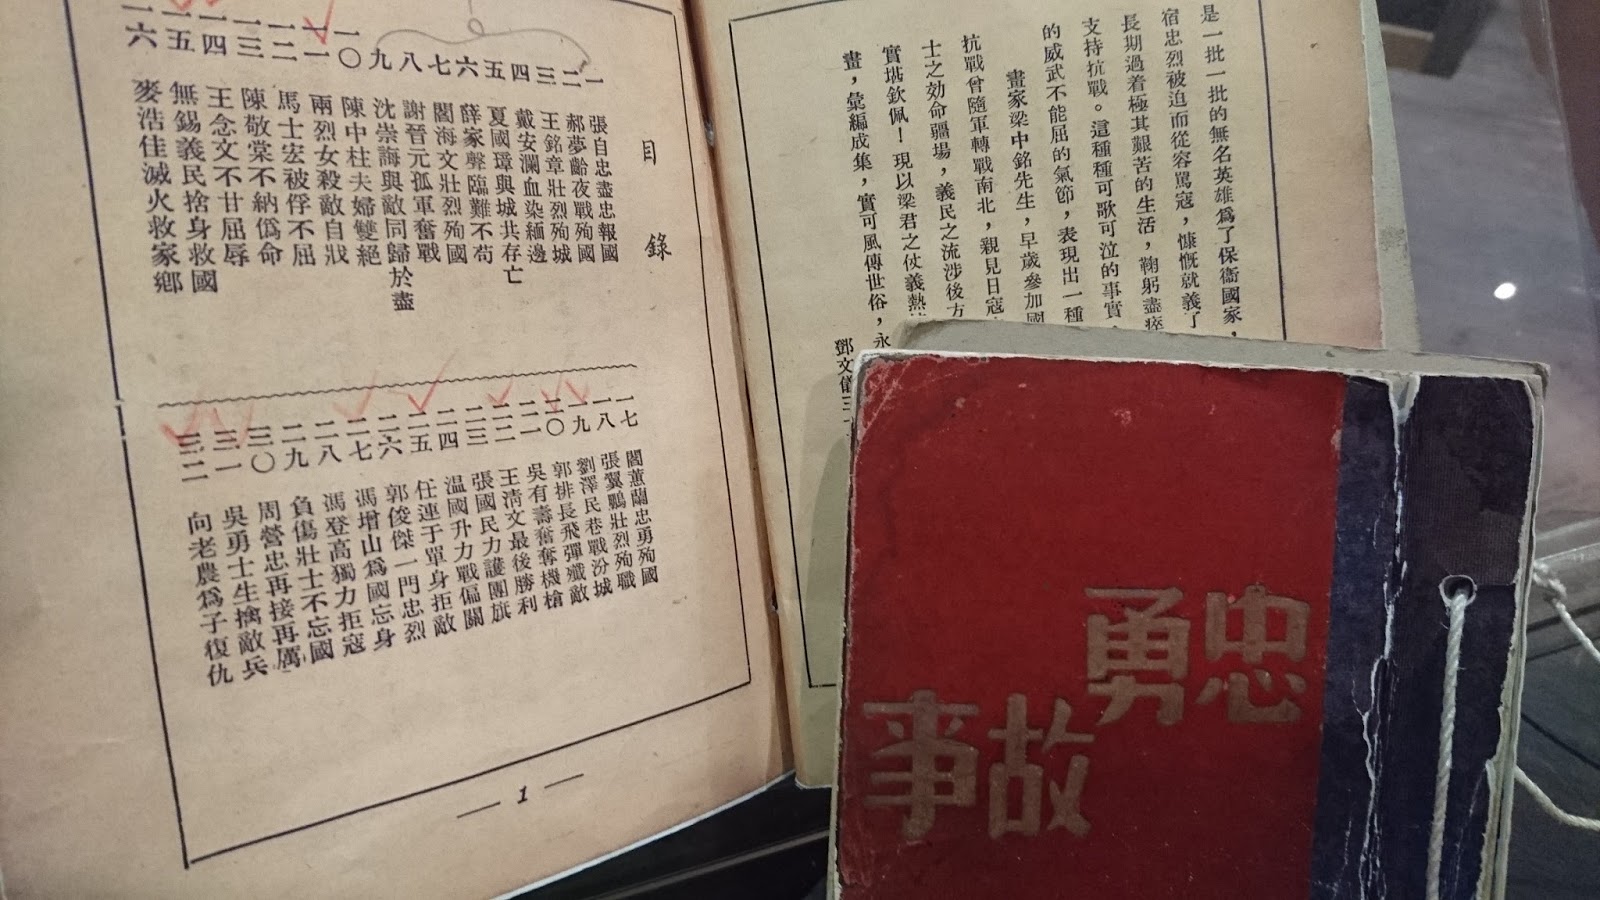 是一批一批的無名英雄爲了保衞國家，
宿忠烈被迫而從容罵寇，慷慨就義了
長期過着極其艱苦的生活，鞠躬盡瘁
支持抗戰。這種種可歌可泣的事實，
的威武不能屈的氣節，表現出一種
畫家梁中銘先生，早歲參加國
抗戰曾隨軍轉戰南北，親見日寇
士之効命疆場，義民之流涉後方
實堪欽佩！現以梁君之仗義熱
畫，彙編成集，實可風傳世俗，永
鄧文儀三
目錄
一 張自忠盡忠報國
二 郝夢齡夜戰殉國
三 王銘章壯烈殉城
四 戴安瀾血染緬邊
五 夏國璋與城共存亡
六 薛家聲臨難不苟
七 閻海文壯烈殉國
八 謝晉元孤軍奮戰
九 沈崇誨與敵同歸於盡
一〇 陳中柱夫婦雙絕
一一 兩烈女殺敵自戕
一二 馬士宏被俘不屈
一三 陳敬棠不納僞命
一四 王念文不甘屈辱
一五 無錫義民捨身救國
一六 麥浩佳滅火救家鄉
一七 閻蕙蘭忠勇殉國
一八 張翼鵬壯烈殉職
一九 劉澤民巷戰汾城
二〇 郭排長飛彈殲敵
二一 吳有壽奮奪機槍
二二 王淸文最後勝利
二三 張國民力護團旗
二四 温國升力戰偏關
二五 任連于單身拒敵
二六 郭俊傑一門忠烈
二七 馮增山爲國忘身
二八 馮登高獨力拒寇
二九 負傷壯士不忘國
三〇 周營忠再接再厲
三一 吳勇士生擒敵兵
三二 向老農爲子復仇
1
忠勇
故事